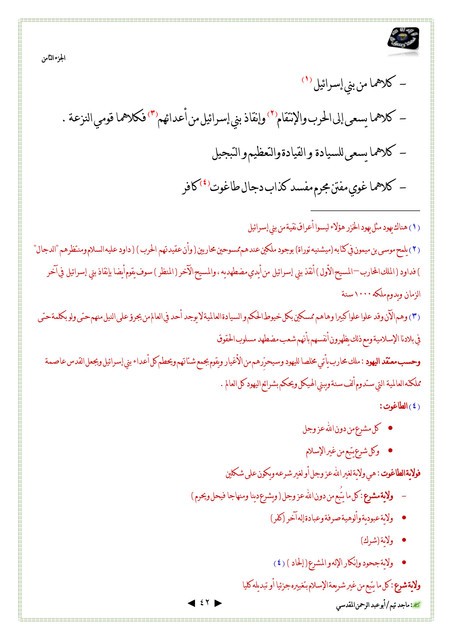 الجزء الثامن
– كلاهما من بني إسرائيل (١)
– كلاهما يسعى إلى الحرب والإنتقام (٢) وإنقاذ بني إسرائيل من أعدائهم (٣) فكلاهما قومي النزعة .
– كلاهما يسعى للسيادة و القيادة والتعظيم و التبجيل
– كلاهما غوي مفتن مجرم مفسد كذاب دجال طاغوت (٤) كافر
(١) هناك يهود مثل يهود الخزر هؤلاء ليسوا أعراق نقية من بني إسرائيل
(٢) يلمح موسى بن ميمون في كتابه (ميشنيه توراة) بوجود ملكين عندهم ممسوحين محاربين (وأن عقيدتهم الحرب) (داود عليه السلام ومنتظرهم "الدجال"
) فداود (الملك المحارب – المسيح الأول) أنقذ بني إسرائيل من أيدي مضطهديه ، والمسيح الآخر (المنتظر) سوف يقوم أيضا بإنقاذ بني إسرائيل في آخر
الزمان ويدوم ملكه ١٠٠٠ سنة
(٣) وهم الآن وقد علوا علوا كبيرا وها هم ممسكين بكل خيوط الحكم و السيادة العالمية لا يوجد أحد في العالم من يجرؤ على النيل منهم حتى ولو بكلمة حتى
في بلادنا الإسلامية ومع ذلك يظهرون أنفسهم بأنهم شعب مضطهد مسلوب الحقوق
وحسب معتقد اليهود : ملك محارب يأتي مخلصا لليهود وسيحررهم من الأغيار ويقوم بجمع شتاتهم ويحطم كل أعداء بني إسرائيل ويجعل القدس عاصمة
مملكته العالمية التي ستدوم ألف سنة ويبني الهيكل ويحكم بشرائع اليهود كل العالم .
(٤) الطاغوت :
• كل مشرع من دون الله عز وجل
• وكل شرع يتبع من غير الإسلام
فولاية الطاغوت : هي ولاية لغير الله عز وجل أو لغير شرعه ويكون على شكلين
– ولاية مشرع : كل ما يتبع من دون الله عز وجل (ويشرع دينا ومنهاجا فيحل ويحرم)
• ولاية عبودية وألوهية صرفة وعبادة إله آخر (كفر)
• ولاية (شرك)
• ولاية جحود وإنكار الإله و المشرع (إلحاد) (٤)
ولاية شرع : كل ما يتبع من غير شريعة الإسلام بتغييره جزئيا أو تبديله كليا
: ماجد تيم / أبو عبد الرحمن المقدسي
◄ ٤٢ ►